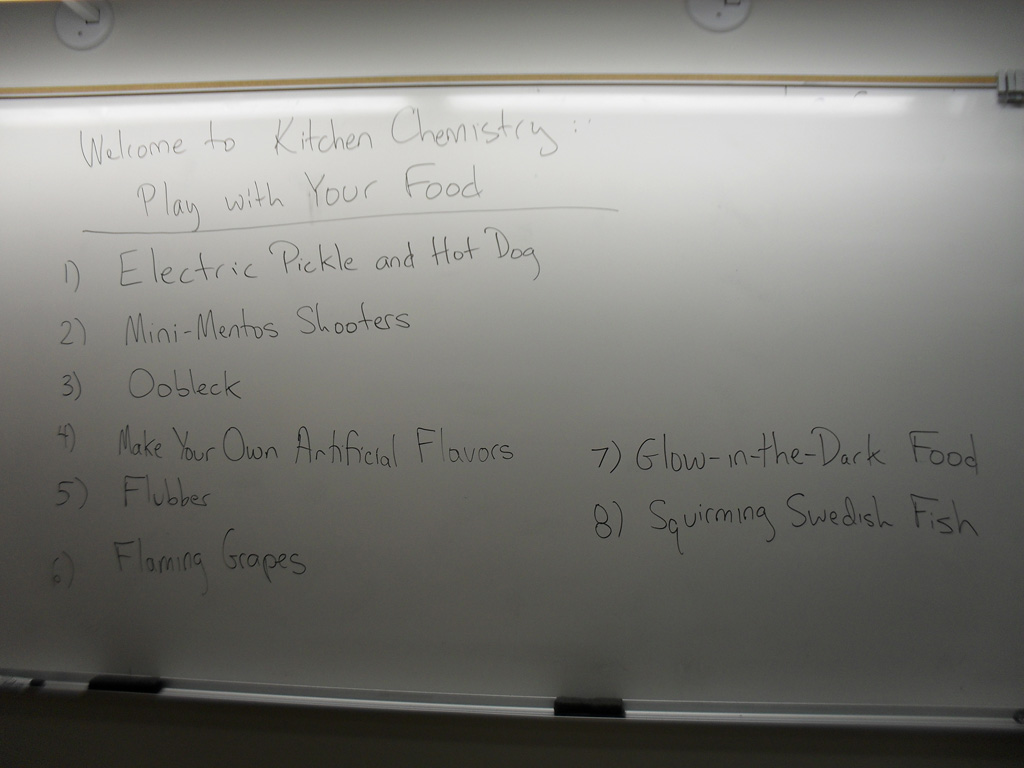 Welcome to Kitchen Chemistry::
Play with Your Food
1) Electric Pickle and Hot Dog
2) Mini-Mentos Shooters
3) Oobleck
4) Make Your Own Artificial Flavors
5) Flubber
6) Flaming Grapes
7) Glow-in-the-Dark Food
8) Squirming Swedish Fish